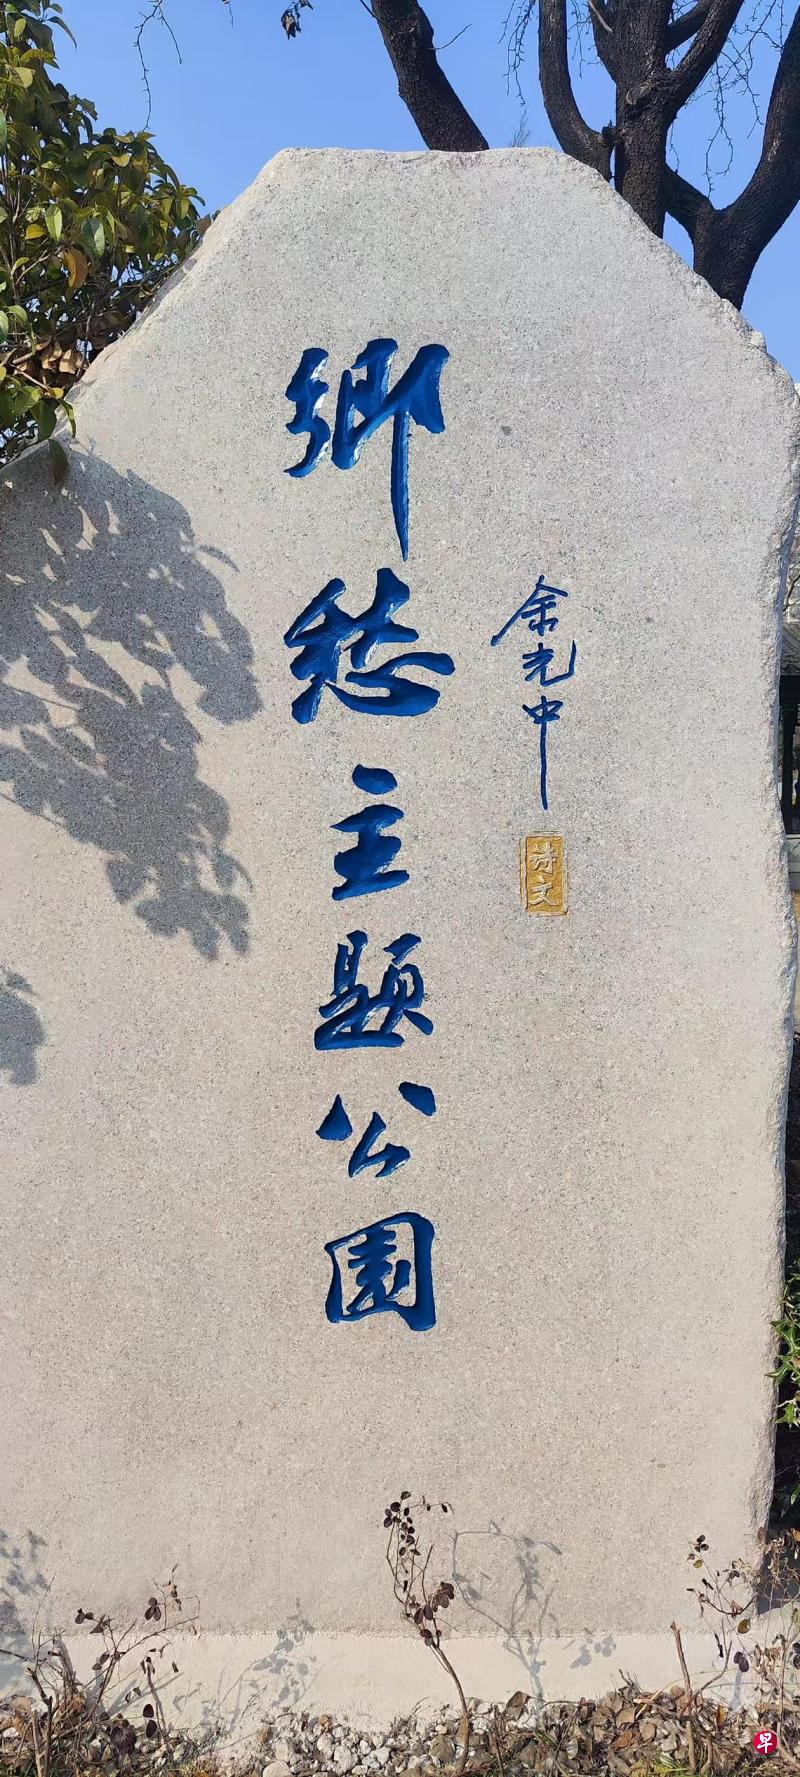 鄉愁主題公園
余光中
诗文
早